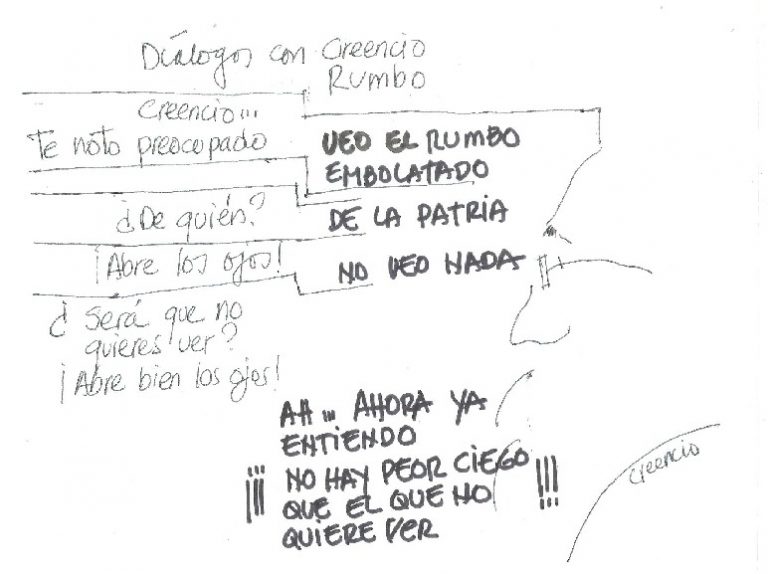 Diálogos con Creencio
Rumbo
Creencio...
Te noto preocupado
VEO EL RUMBO
EMBOLATADO
¿De quién?
DE LA PATRIA
¡Abre los ojos!
NO VEO NADA
¿Será que no
quieres ver?
¡Abre bien los ojos!
AH... AHORA YA
ENTIENDO
¡¡¡ NO HAY PEOR CIEGO
QUE EL QUE NO
QUIERE VER !!!
Creencio